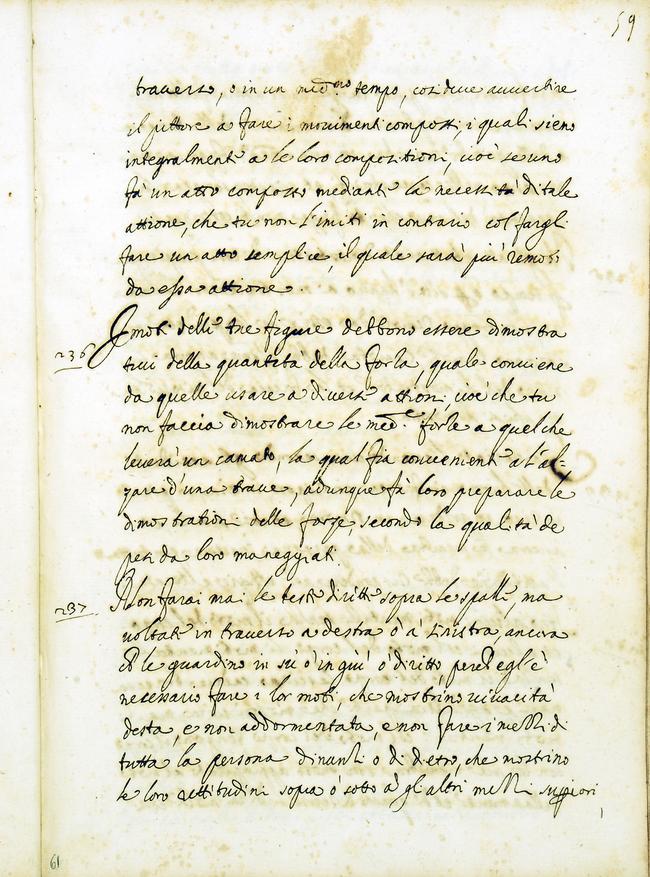 59
traverso, o in un med.mo tempo, così deve avvertire
il pittore a fare i movimenti composti, i quali sieno
integralmente a le loro compositioni, cioè se uno
fà un atto composto mediante la necessità di tale
attione, che tu non l'imiti in contrario col fargli
fare un atto semplice, il quale sarà più remoti
da essa attione.
236 I moti delle tue figure debbono essere dimostra
tivi della quantità della forza, quale conviene
da quelle usare a diverse attioni, cioè che tu
non faccia dimostrare le med.e forze a quel che
leverà un canato, la qual fia conveniente a l'al-
zare d'una trave, adunque fà loro preparare le
dimostrationi delle forze, secondo la qualità de
pesi da loro maneggiati.
237 Non farai mai le teste diritte sopra le spalle, ma
voltate in traverso a destra ò a sinistra, ancora
ch le guardino in sù ò in giù ò diritto, perch egl'è
necessario fare i lor moti, che mostrino vivacità
desta, e non addormentata, e non fare i mezzi di
tutta la persona dinanzi o di dietro, che mostrino
le loro rettitudini sopra ò sotto à gl'altri mezzi superiori
61